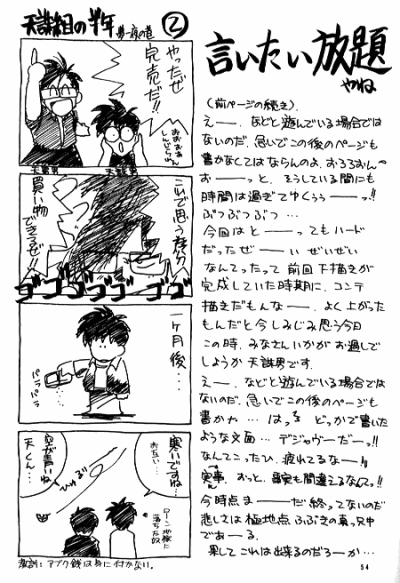 天誅組の半年
②
やったぜ
完売だ!!
おおおお
しんじらんねー
天誅男
これで思う存分
買い物
できるぜ!!
ゴゴゴゴゴ ゴゴ
一ケ月後…
パラパラ…
寒いですね…
おたがい…
空が青いね
天くん…
ひゅるる
教訓:アブク銭は身に付かない。
言いたい放題
やね
(前ページの続き)
えー──、などと遊んでいる場合では
ないのだ、急いでこの後のページも
書かなくてはならんのよ、おろろおん〜
お──っと、そうしている間にも
時間は過ぎてゆくぅぅ──っ!!
ぶつぶつぶつ…
今回はと───ってもハード
だったぜ── い ぜいぜい
なんてったって前回下描きが
完成していた時期に、コンテ
描きだもんな──、よく上がった
もんだと今しみじみ思う今日
この時、みなさんいかがお過しで
しょうか 天誅男です。
えー、などと遊んでいる場合では
ないのだ、急いでこの後のページも
書かや… はっ、どっかで書いた
ような文面… デジャヴーだーっ!!
なんてこったい、疲れてるな──!
実事、おっと、事実も間違えるなんてっ!!
今時点ま───だ終ってないのだ
悲しくは極地点ふぶきの真っ只中
であ──る。
果してこれは出来るのだろーか…
54